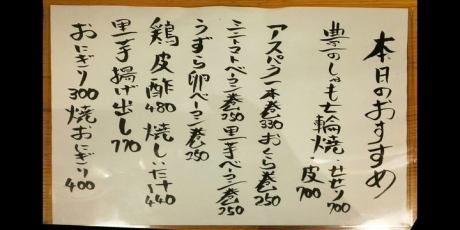 本日のおすすめ
豊のしゃも七輪焼・せせり700
・皮700
アスパラ一本巻330 おくら巻250
ミニトマトベーコン巻250 里芋ベーコン巻250
うずら卵ベーコン巻250
鶏皮酢480 焼しいたけ440
里芋揚げ出し770
おにぎり300 焼おにぎり400